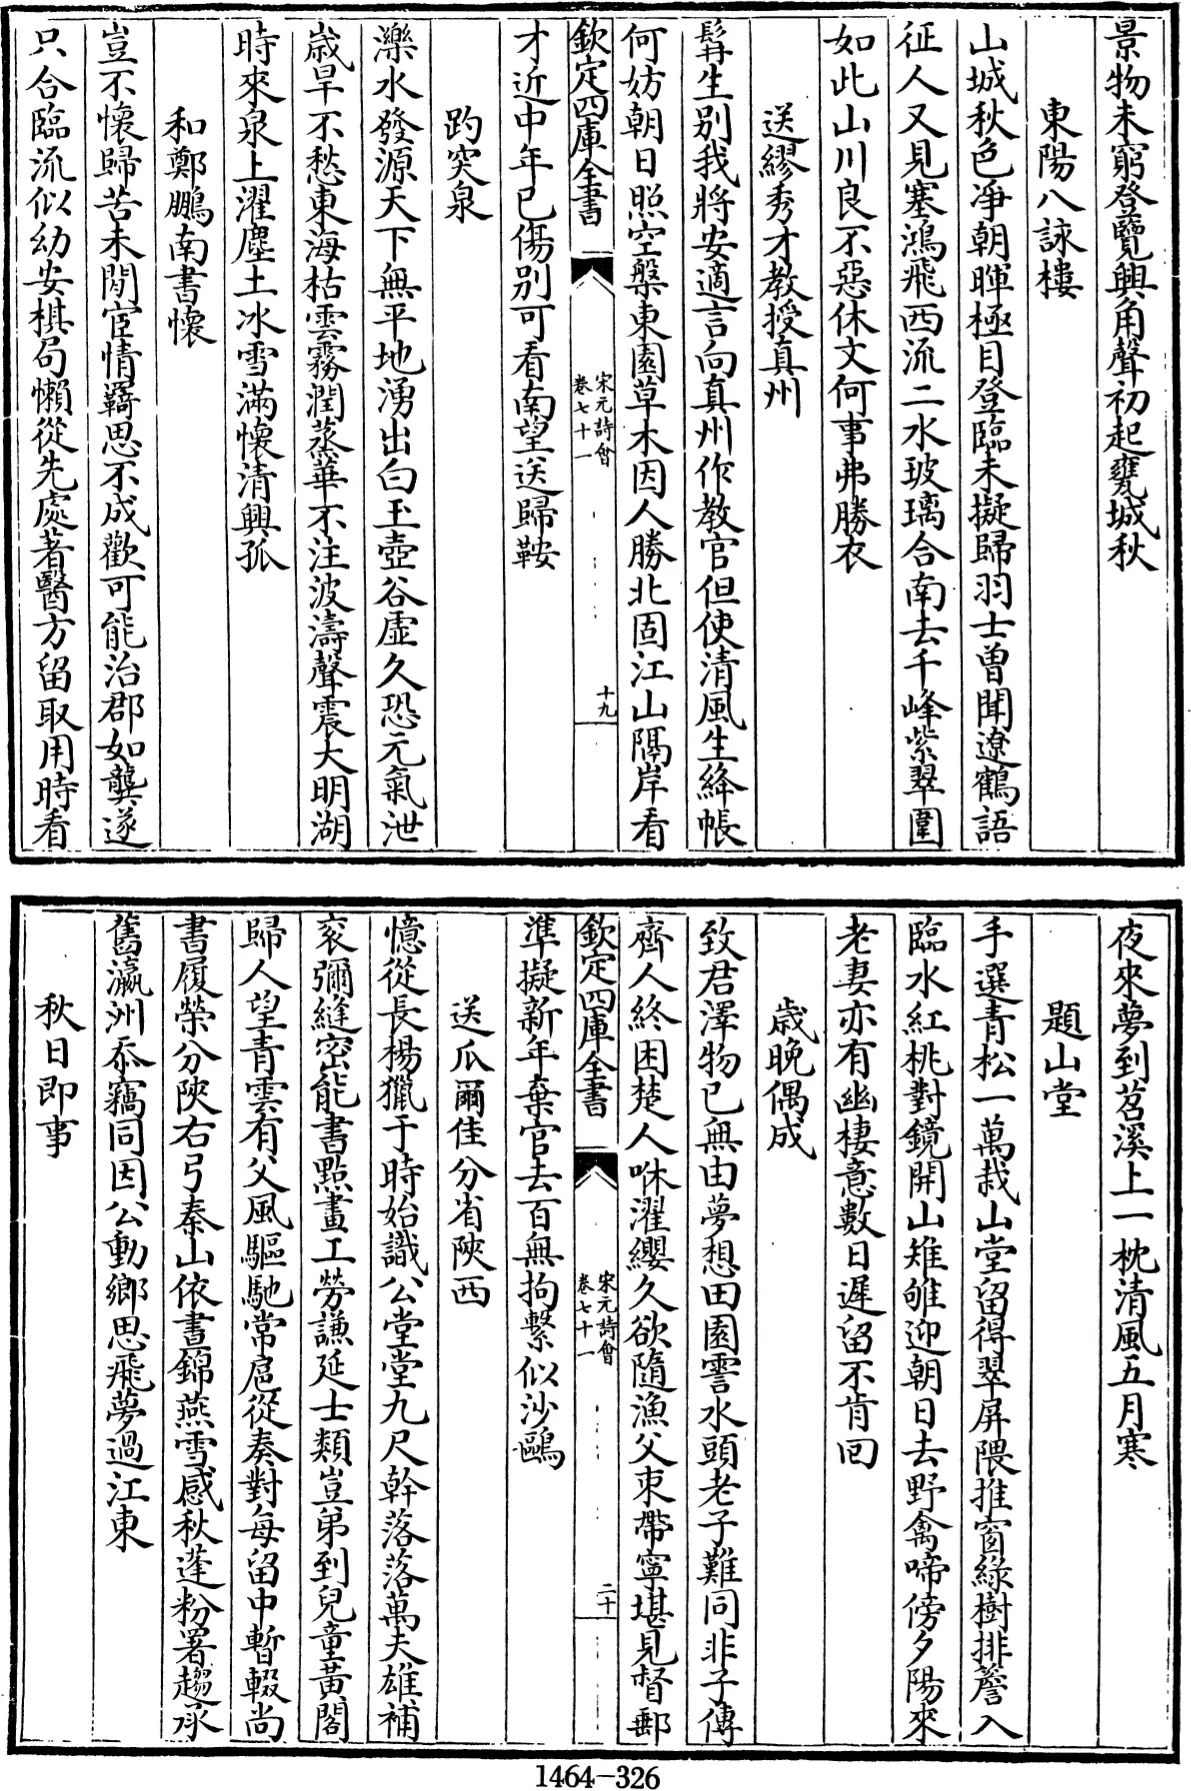 景物未窮登覽興角聲初起甕城秋
東陽八詠樓
山城秋色净朝暉極目登臨未擬歸羽士曽聞遼鶴語
征人又見塞鴻飛西流二水玻璃合南去千峰紫翠圍
如此山川良不惡休文何事弗勝衣
送繆秀才教授真州
髯生别我將安適言向真州作教官但使清風生絳帳
何妨朝日照空槃東園草木因人勝北固江山隔岸看
欽定四庫全書
宋元詩㑹
卷七十一
十九
才近中年已傷别可看南望送歸鞍
趵突泉
濼水發源天下無平地湧出白玉壺谷虚久恐元氣泄
歲旱不愁東海枯雲霧潤蒸華不注波濤聲震大明湖
時來泉上濯塵土冰雪滿懷清興孤
和鄭鵬南書懷
豈不懷歸苦未閒宦情羇思不成歡可能治郡如龔遂
只合臨流似幼安棋局懶從先處著醫方留取用時看
夜來夢到苕溪上一枕清風五月寒
題山堂
手選青松一萬栽山堂留得翠屏隈推窗綠樹排簷入
臨水紅桃對鏡開山雉雊迎朝日去野禽啼傍夕陽來
老妻亦有幽棲意數日遲留不肯回
歲晚偶成
致君澤物已無由夢想田園霅水頭老子難同非子傳
齊人終困楚人咻濯纓久欲隨漁父束帶寧堪見督郵
欽定四庫全書
宋元詩㑹
卷七十一
二十
準擬新年棄官去百無拘繫似沙鷗
送瓜爾佳分省陝西
憶從長楊獵于時始識公堂堂九尺幹落落萬夫雄補
衮彌縫密能書點畫工勞謙延士類豈弟到兒童黃閣
歸人望青雲有父風驅馳常扈從奏對每留中暫輟尚
書履榮分陝右弓秦山依晝錦燕雪感秋蓬粉署趨承
舊瀛洲忝竊同因公動鄉思飛夢過江東
秋日即事
1464-326